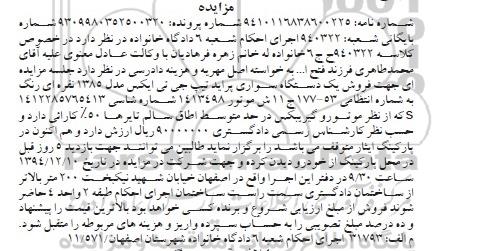 مزایده
شماره نامه: ۹۴۱۰۱۱۶۸۳۸۶۰۰۲۲۵ شماره پرونده: ۹۳۰۹۹۸۰۳۵۲۵۰۰۳۲۰ شماره
بایگانی شعبه: ۹۴۰۳۲۲ اجرای احکام شعبه ۶ دادگاه خانواده در نظر دارد در خصوص
کلاسه ۹۴۰۳۲۲ ح ج ۶ خانواده له خانم زهره فرهادیان با وکالت عادل معنوی علیه آقای
محمدطاهری فرزند فتح ا... به خواسته اصل مهریه و هزینه دادرسی در نظر دارد جلسه مزایده
ای جهت فروش یک دستگاه سواری پراید تیپ جی تی ایکس مدل ۱۳۸۵ نقره ای رنگ
به شماره انتظامی ۵۳-۱۷۷ ج ۱۱ ش موتور ۱۴۱۳۴۹۸ شماره شاسی ۱۴۱۲۲۸۵۷۶۵۴۱۳
S که از نظر موتور و گیربکس در حد متوسط اطاق سالم تایرها ۵۰٪ کارائی دارد و
حسب نظر کارشناس رسمی دادگستری ۹۰۰۰۰۰۰۰ ریال ارزش دارد و هم اکنون در
پارکینگ ایثار متوقف می باشد را برگزار نماید طالبین می توانند جهت بازدید ۵ روز قبل
در محل پارکینگ از خودرو دیدن کرده و جهت شرکت در مزایده در تاریخ ۱۳۹۴/۱۲/۱۰
ساعت ۹/۳۰ در دفتر این اجرا واقع در اصفهان خیابان شهید نیکبخت ۲۰۰ متر بالاتر
از ساختمان دادگستری سمت راست ساختمان اجرای احکام طبقه ۲ واحد ۴ حاضر
شوند فروش از مبلغ ارزیابی شروع و برنده کسی خواهد بود بالاترین قیمت را پیشنهاد
و ده درصد مبلغ تصویبی را به حساب سپرده واریز و هزینه های مربوطه را متقبل شود.
م الف: ۳۱۷۵۳ اجرای احکام شعبه ۶ دادگاه خانواده شهرستان اصفهان/۱۱۰۵۷۱